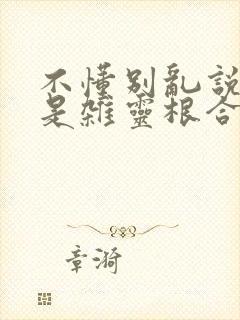 不懂別亂說
是雜靈根合
章漪